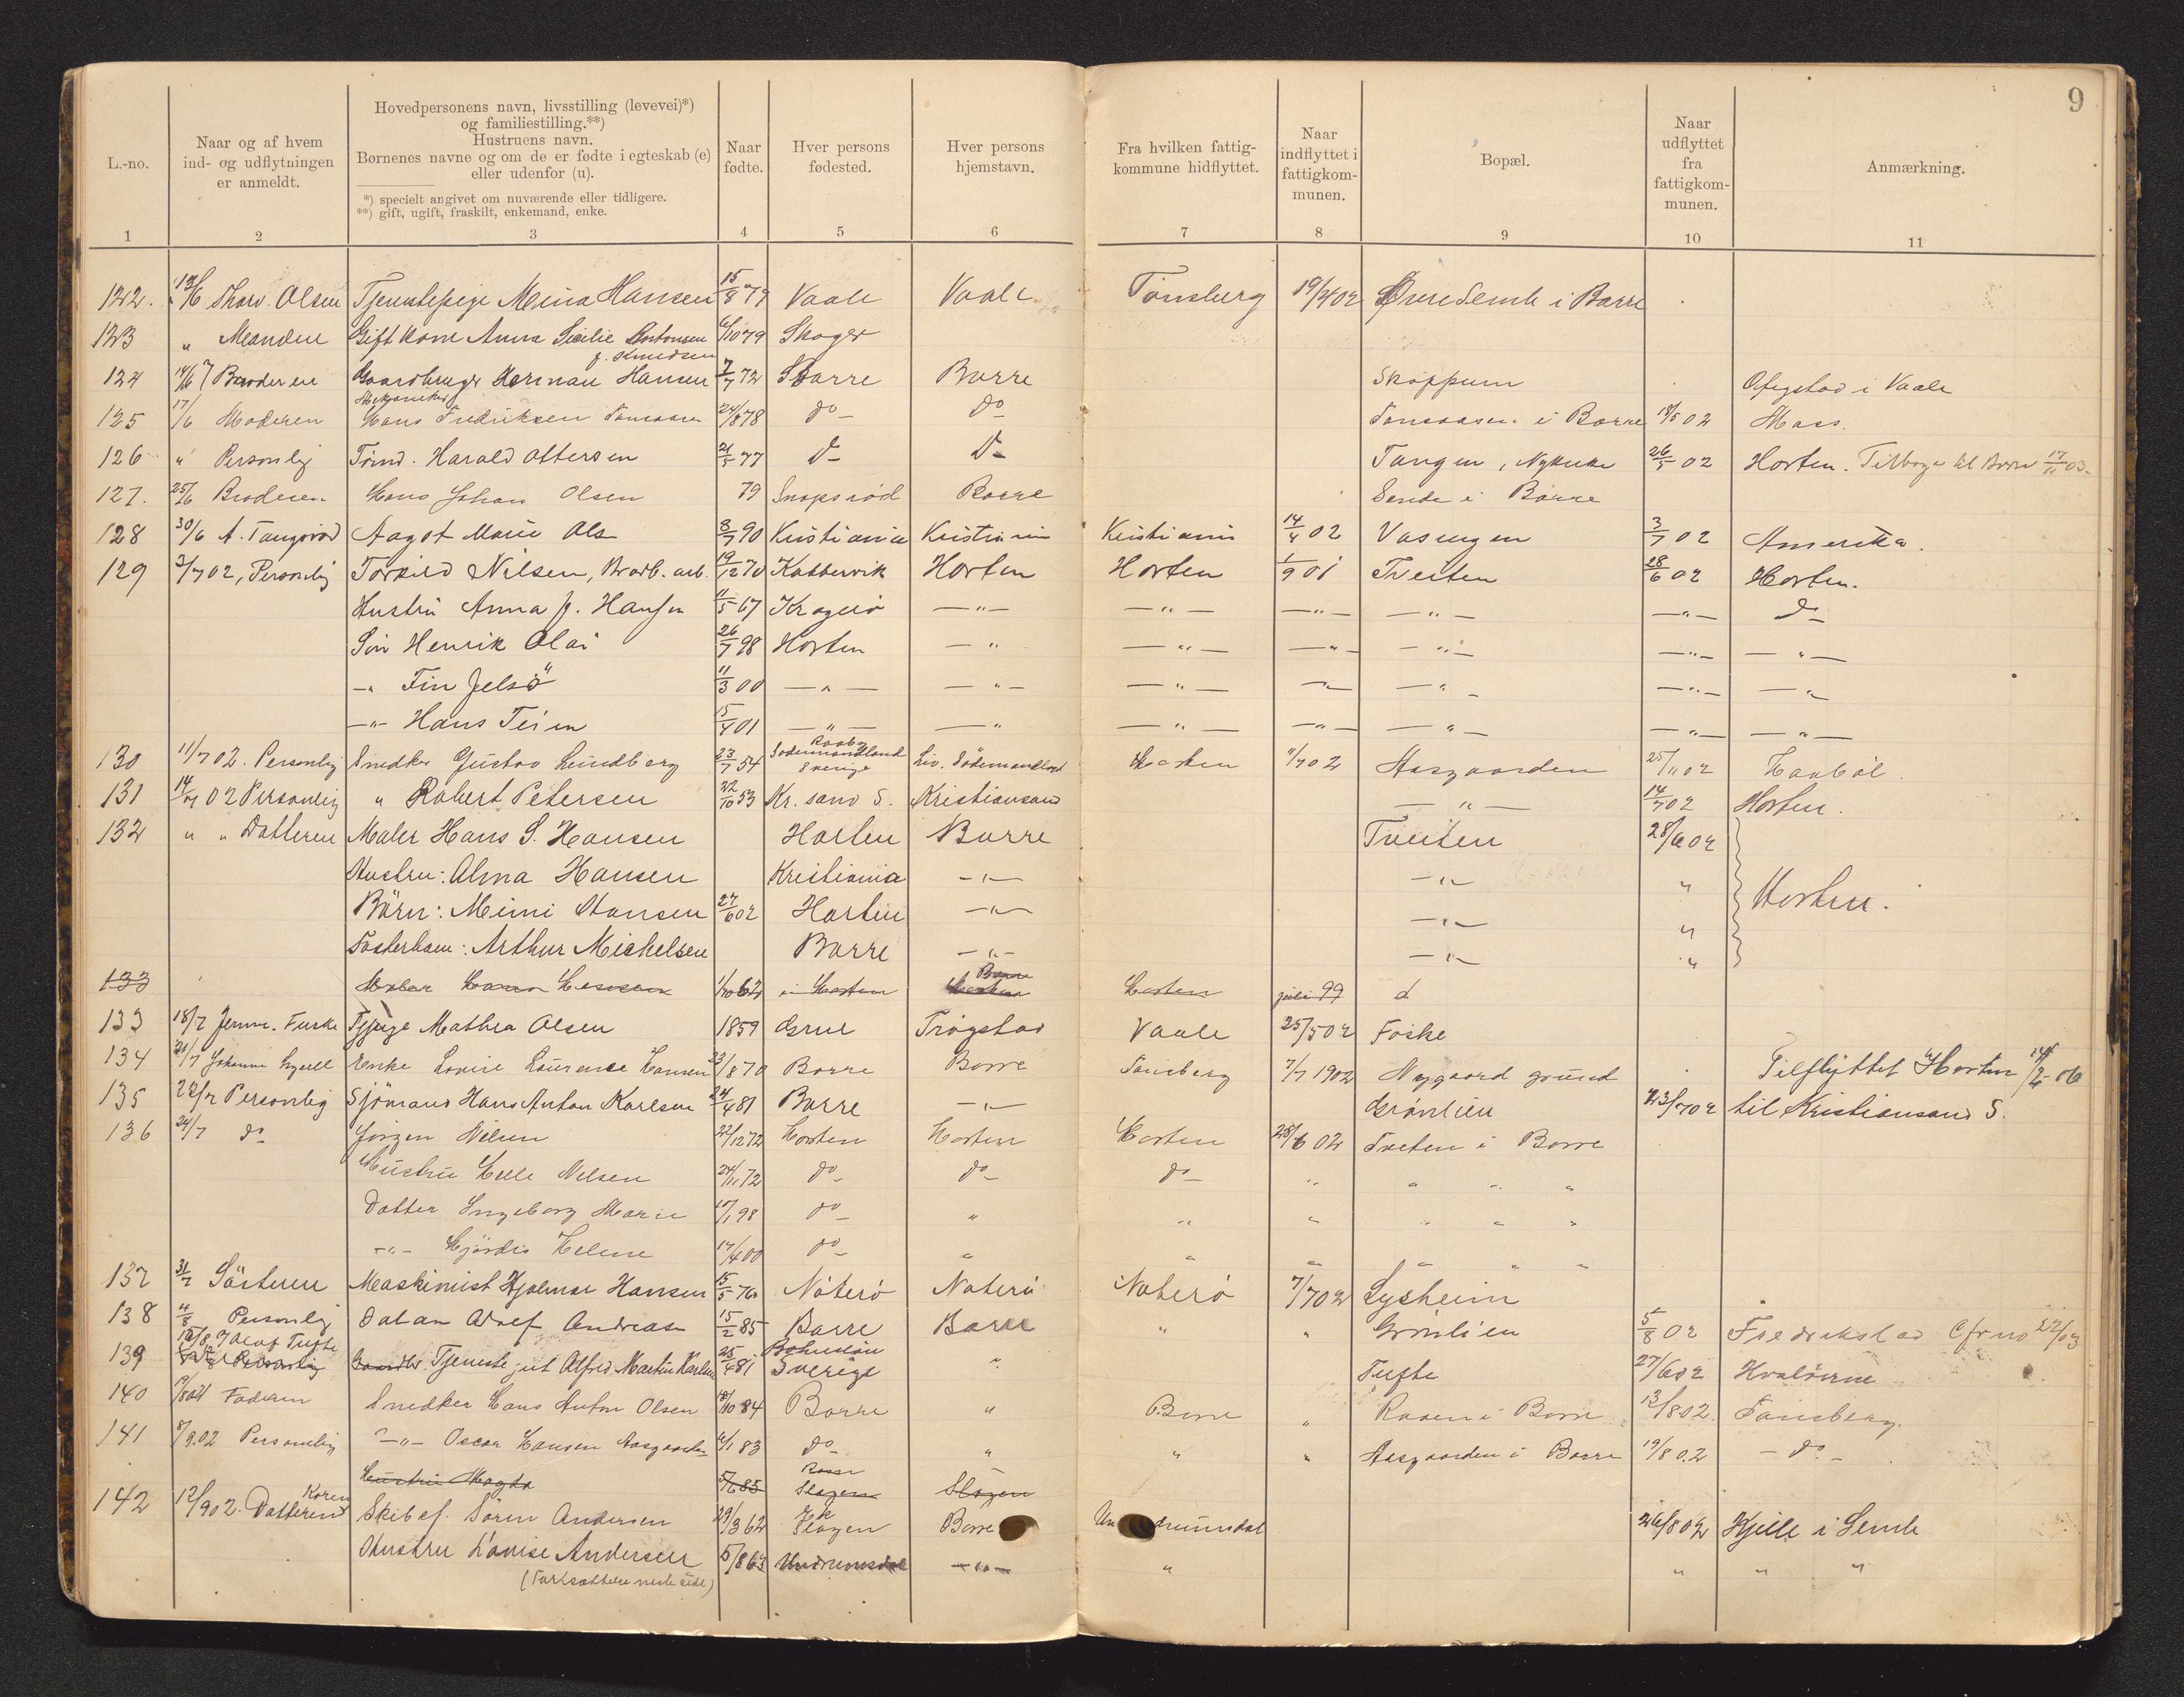 9
L.-no.
Naar og af hvem ind- og udflytningen er anmeldt.
Hovedpersonens navn, livsstilling (levevei)*) og familiestilling.**)
Hustruens navn.
Børnenes navne og om de er fødte i egteskab (e) eller udenfor (u).
*) specielt angivet om nuværende eller tidligere.
**) gift, ugift, fraskilt, enkemand, enke.
Naar fødte.
Hver persons fødested.
Hver persons hjemstavn.
Fra hvilken fattigkommune hidflyttet.
Naar indflyttet i fattigkommunen.
Bopæl.
Naar udflyttet fra fattigkommunen.
Anmærkning.
1 2 3 4 5 6 7 8 9 10 11
122. Thorv. Olsen Tjenestepige Mina Hansen 15/8 79 Vaale Vaale Tønsberg 19/4 02 Øvre Semb i Borre
123 " Manden Gift Kone Anna Secilie Antonsen f. Knudsen 6/10 79 Skoger
124 14/6 Broderen Gaardbruger Herman Hansen 7/7 72 Borre Borre Skoppum Ofegstad i Vaale
125 17/6 Moderen Hans Fredriksen 24/8 78 do do i Borre 18/5 02 Moss.
126 " Personlig Tømd. Harald Ottersen 21/5 77 do do Tangen, Nykirke 26/5 02 Horten. Tilbage til Borre 17/11 03
127. 25/6 Broderen Hans Johan Olsen 79 Snapsrød Borre Sende i Borre
128 30/6 A. Tangsrød Aagot Marie Ols 8/7 90 Kristiania Kristiania Kristiania 14/4 02 Vasengen 3/7 02 Amerika.
129 3/7 02, Personlig Torkild Nilsen, arb. 19/12 70 Kabbervik Horten Horten 1/9 01 Tveiten 28/6 02 Horten.
Hustru Anna f. Hansen 11/5 67 Kragerø —"— —"— —"— —"— —"— do
Søn Henrik Olai 26/7 98 Horten —" —"— —"— —"— —"— —"—
—" Fin Jelsø 11/3 00 —"— —"— —"— —"— —"— —"— —"—
—"— Hans Teien 15/4 01 —"— —" —"— —"— —"— —"— —"—
130 11/7 02. Personlig Snedker Gustav Lundberg 23/7 54 Södermandland Sverige Horten 11/7 02 Aasgaarden 25/11 02
131 14/7 02 Personlig " Robert Petersen 22/10 53 Kr.sand S. Kristiansand —"— 14/7 02 Horten.
132 " " Datteren Maler Hans S. Hansen Horten Borre Tveiten 28/6 02
Hustru: Alma Hansen Kristiania —"— —"— "
Börn: Mimi Hansen 27/6 02 Horten —"— —"— " Horten.
Fosterbarn: Arthur Michelsen Borre —"— —"— "
133 Maler Hans Hansen 1/10 62 Horten Horten Borre Horten juli 99
133 18/7 Fuske Tjpige Mathea Olsen 1859 Grue Trøgstad Vaale 25/5 02 Foske
134 21/7 Johanne Enke Lovise Laurense Hansen 23/8 70 Borre Borre Tønsberg 7/7 1902 Nygaard grund Tilflyttet Horten 14/2 06
135 22/7 Personlig Sjømand Hans Anton Karlsen 24/4 81 Borre —"— Grønlien 23/7 02 til Kristiansand S.
136 24/7 do Jørgen Nilsen 22/12 72 Horten Horten Horten 28/6 02 Treten i Borre
Hustru Nilsen 24/11 72 do do do " " " "
Datter Ingeborg Marie 10/1 98 do " " " " " "
—"— Hjørdis Helene 17/4 00 do " " " " " "
137 31/7 Søsteren Maskinist Hjalmar Hansen 15/5 76 Nøterø Nøterø Nøterø 7/7 02 Lysheim
138 4/8 Personlig Adolf Andreas 15/2 85 Borre Borre " " Grønlien 5/8 02 Fredrikstad
139 12/8 Olaf Tufte Personlig Tjenestejut Alfred Martin Karlsen 25/4 81 Bohuslän Sverige " Tufte 27/6 02 Hvaløerne
140 Faderen Snedker Hans Anton Olsen 18/10 84 Borre " Borre " Raaen i Borre 13/8 02. Tønsberg.
141 8/9.02 Personlig —"— Oscar Hansen Aasgaarden 6/1 83 do " " " Aasgaarden i Borre 19/8 02 — do —
Hustru Magda 5/6 85 Slagen Slagen
142 12/9 02. Datteren Karen Skibef. Søren Andersen 29/3 62 Slagen Borre Un drumsdal 26/8 02 Hjelle i Semb
Hustru Lovise Andersen 5/8 63 Undrumsdal —"— " " " "
(Fortsættelse neste side)